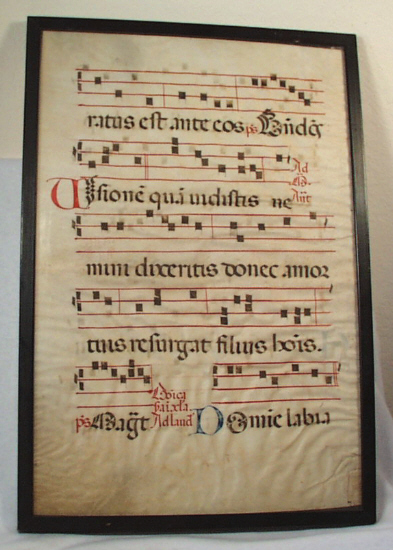 ratus est ante eos ps Bñdc̄s
Ad
Visionē quā uidistis ne
mini dixeritis donec amor
tuis resurgat filius hoīs.
ps Magt̄ Ad laud Domine labia